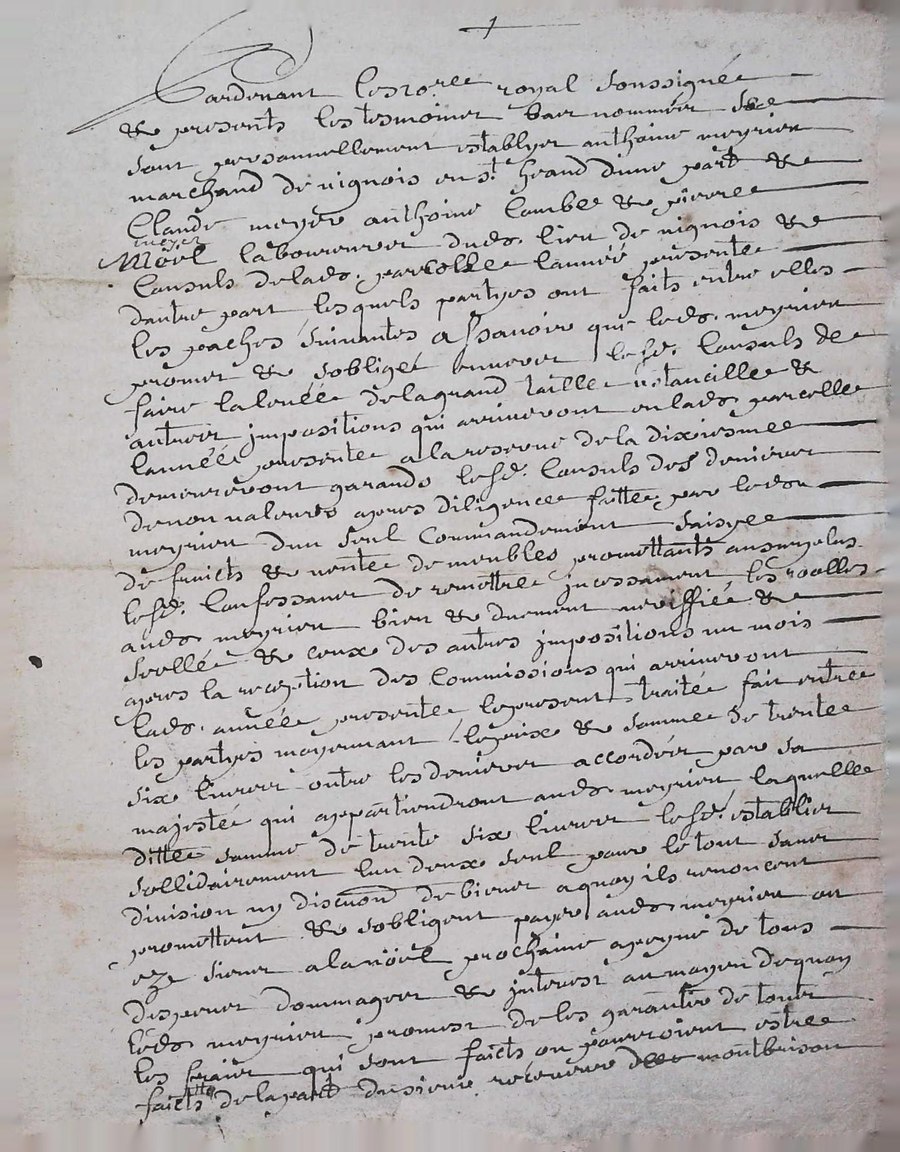 1
Pardevant le notere royal soussigné
& presents les tesmoins bas nommés se
sont personnellement establyes anthoine meyrieu
marchand de vignois en st. heand dune part &
Claude meyer anthoine Combe & pierre
meyer
Noel laboureurs dud. lieu de vignois &
Consuls de lad. parcelle lannée presente
dautre part lesquels partyes ont faits entre elles
les paches suivantes assavoir que led. meyrieu
promet & sobligé envers lesd. Consuls de
faire la levée de la grand taille ustancille &
autres impositions qui arriveront en lad. parcelle
lannée presente a la reserve de la dixiesme
demeureront garands lesd. Consuls des deniers
de non valeurs apres diligence faitte par led.
meyrieu dun seul Commandement saisye
de fruicts & vente de meubles promettants au surplus
lesd. de remettre incessament les roolles
aud. meyrieu bien & duement &
scellé & ceux des autres impositions un mois
apres la reception des Commissions qui arriveront
lad. année presente le present traité fait entre
les partyes moyennant le prix & somme de trente
six livres outre les deniers accordés par sa
majesté qui appartiendront aud. meyrieu laquelle
ditte somme de trente six livres lesd. establies
sollidairement lun deux seul pour le tout sans
division ny discution de biens a quoy ils renoncent
promettent & sobligent payer aud. meyrieu ou
ez siens a la noël prochaine a peyne de tous
despens dommages & interest au moyen de quoy
led. meyrieu promest de les garantir de touts
les fraix qui sont faicts ou pourroient estre
faicts de la part du sieur receveur de montbrison